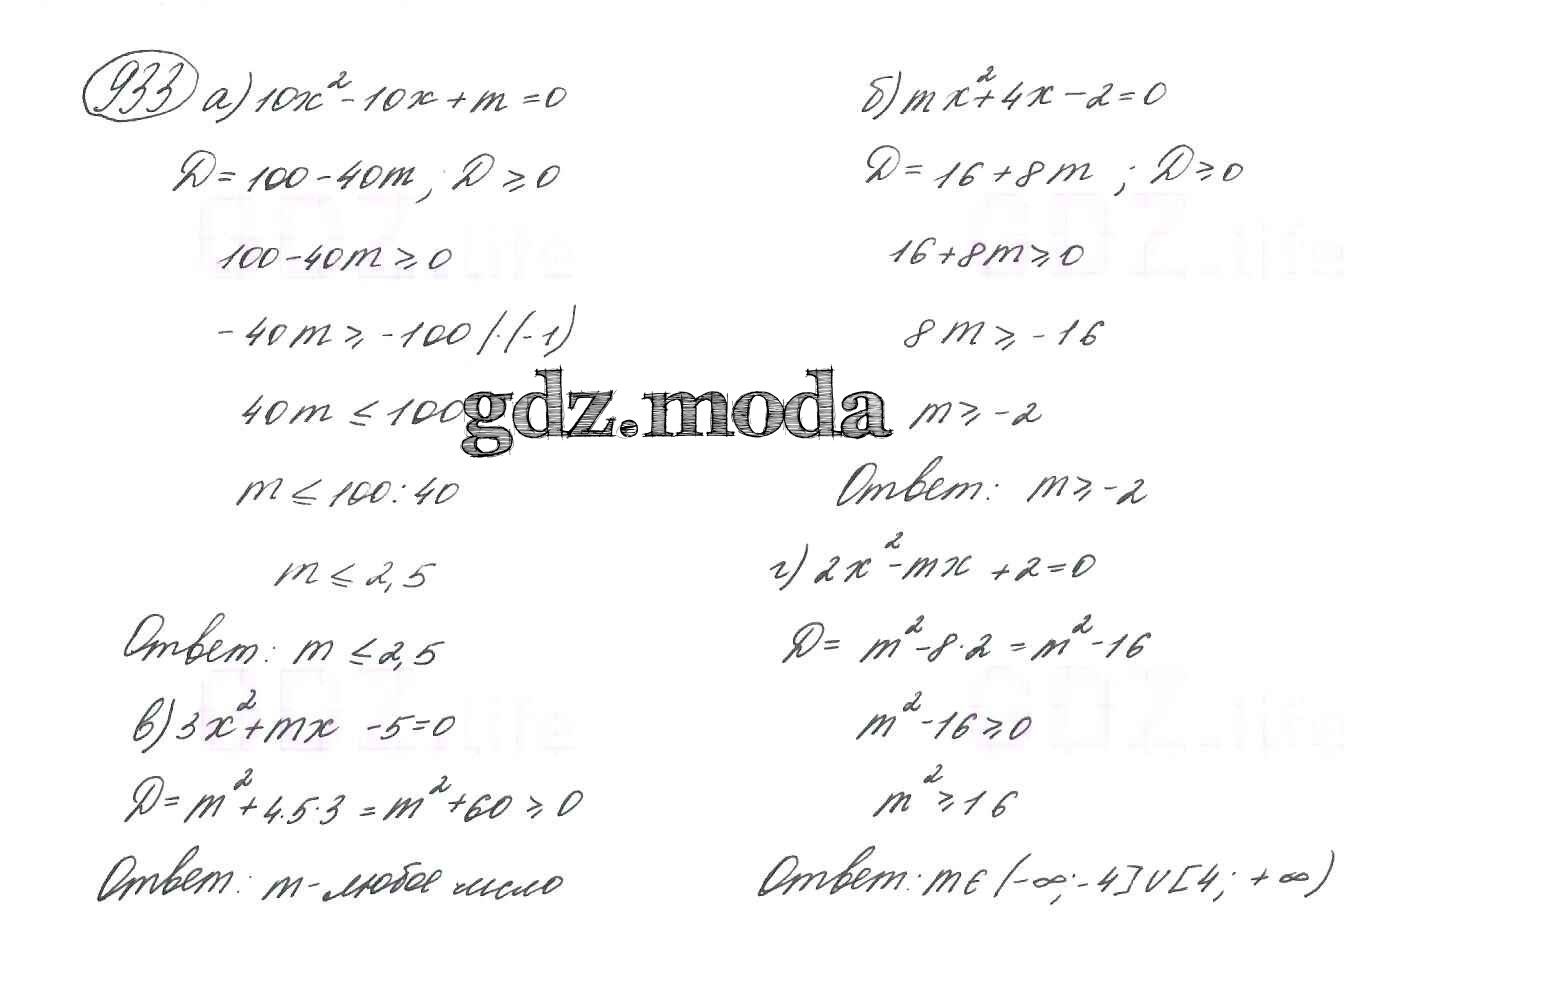 933 а) 10x² - 10x + m = 0
D = 100 - 40m; D ≥ 0
100 - 40m ≥ 0
-40m ≥ -100 / · (-1)
40m ≤ 100
m ≤ 100 : 40
m ≤ 2,5
Ответ: m ≤ 2,5
в) 3x² + mx - 5 = 0
D = m² + 4·5·3 = m² + 60 ≥ 0
Ответ: m - любое число
б) mx² + 4x - 2 = 0
D = 16 + 8m; D ≥ 0
16 + 8m ≥ 0
8m ≥ -16
m ≥ -2
Ответ: m ≥ -2
г) 2x² - mx + 2 = 0
D = m² - 8·2 = m² - 16
m² - 16 ≥ 0
m² ≥ 16
Ответ: m ∈ (-∞; -4] ∪ [4; +∞)
gdz.moda
GDZ.life
GDZ.life
GDZ.life
GDZ.life